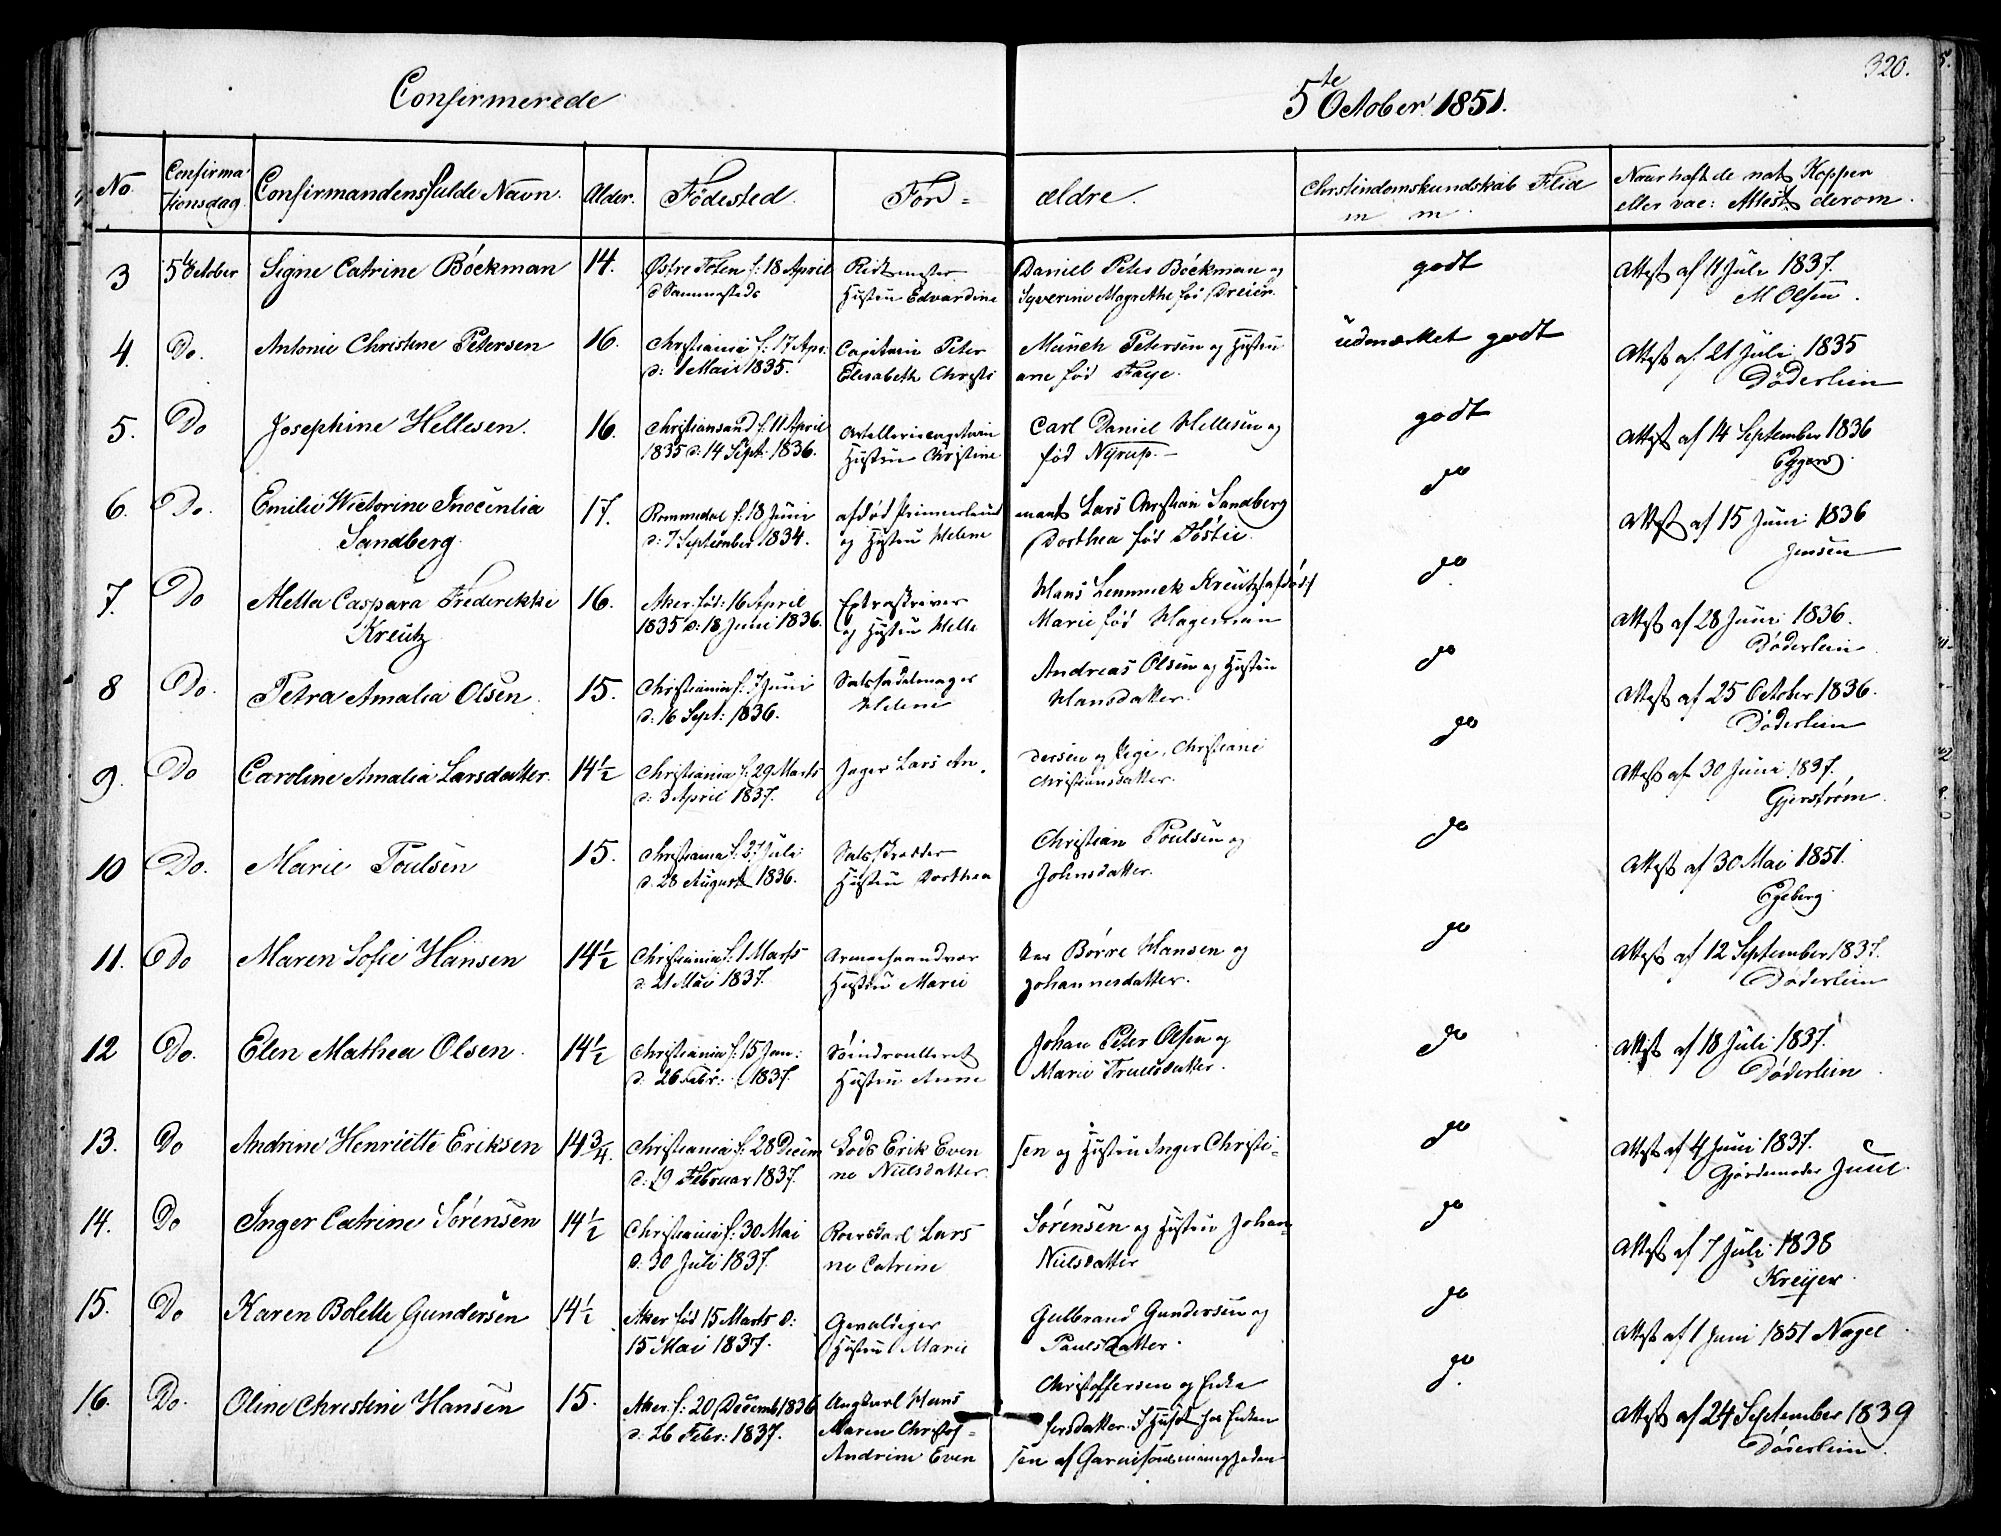 320.
Confirmerede
5te October 1851.
No
Confirma-
tionsdag
Confirmandens fulde Navn.
Alder.
Fødested.
For=
ældre.
Christendomskundskab Flid
m m.
Naar hafte de nat: Kopper
eller vac: Attest derom.
3 5te October Signe Catrine Böckman 14. Østre Toten f: 18 April Ridtmester Daniel Peter Böckman og godt Attest af 11 Juli 1837.
d Sammesteds Hustru Edvardine Syverine Magrethe fød Dreier. M Olsen.
4. Do. Antonie Christine Petersen 16. Christiania f: 17 Apr: Capitain Peter Münch Petersen og Hustru udmærket godt Attest af 21 Juli 1835
d: 1 Mai 1835. Elisabeth Christi ane fød Faye. Döderlein
5. Do Josephine Hellesen. 16. Christiansand f. 11 April Artellericapitain Carl Daniel Hellesen og godt Attest af 14 September 1836
1835 d: 14 Sept. 1836. Hustru Christine fød Nyrup. Eggers.
6. Do. Emilie Victorine Inocentia 17. Rommedal f. 18 Juni afdød Primierleut mant Lars Christian Sandberg do Attest af 15 Juni 1836
Sandberg d: 7 September 1834. og Hustru Helene Dorthea fød Jensen
7. Do Mette Caspara Frederikke 16. Aker. fød: 16 April Extraskriver Hans Lemmek Kreutz (afdød) do Attest af 28 Juni 1836.
Kreutz 1835 d: 18 Juni 1836. og Hustru Helle Marie fød Hageman Döderlein
8 Do. Petra Amalia Olsen. 15. Christiania f. 7 Juni Andreas Olsen og Hustru do Attest af 25 October 1836.
d: 16 Sept: 1836. Helene Hansdatter. Döderlein
9. Do Caroline Amalia Larsdatter. 14½ Christiania f. 29 Marts Jæger Lars An, dersen og Pige, Christiane do Attest af 30 Juni 1837.
d: 3 April 1837. Christiansdatter. Gjerstrøm.
10 Do. Marie Poulsen 15. Christiania f: 27 Juli Christian Poulsen og do Attest af 30 Mai 1851.
d. 28 August 1836. Hustru Dorthea Johnsdatter. Egeberg
11. Do Maren Sofie Hansen 14½ Christiania f. 1 Marts Børre Hansen og do Attest af 12 September 1837.
d. 21 Mai 1837. Hustru Marie Johannesdatter. Döderlein
12 Do. Elen Mathea Olsen. 14½ Christiania f. 15 Jan: Søindroulleret Johan Peter Olsen og do Attest af 18 Juli 1837.
d. 26 Febr: 1837. Hustru Anne Marie Truelsdatter. Döderlein
13. Do Andrine Henriette Eriksen 14¾. Christiania f. 28 Decem Lods Erik Even sen og Hustru Inger Christi- do Attest af 4 Juni 1837.
d: 19 Februar 1837. ne Nielsdatter. Gjordemoder Juul.
14. Do Inger Catrine Sørensen 14½ Christiania f. 30 Mai Roerskarl Lars Sørensen og Hustru Johan- do Attest af 7 Juli 1838
d. 30 Juli 1837. ne Catrine Nielsdatter Kreyer.
15. Do Karen Bolette Gundersen 14½ Aker fød 15 Marts d: Gevaldiger Gulbrand Gundersen og do Attest af 1 Juni 1851 Nagel
15 Mai 1837. Hustru Marie Paulsdatter.
16. Do. Oline Christine Hansen 15. Aker. f: 20 Decemb. 1836 Hans Christoffersen og Enke do. Attest af 24 September 1839
d. 26 Febr: 1837. Maren Christof= fersdatter. I Huset hos Enken Döderlein
Andrine Even sen af Garnisonsmenigheden